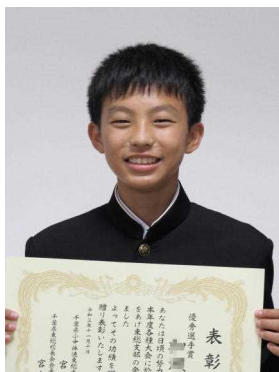 表彰
優秀選手賞
あなたは日頃の努力
本年度各種大会に於
をあげ東総支部の会
ました
よってその功績を
贈り表彰いたします
令和三年十一月十日
千葉県小中体連東総支
宮
千葉県東総校長会会長
宮